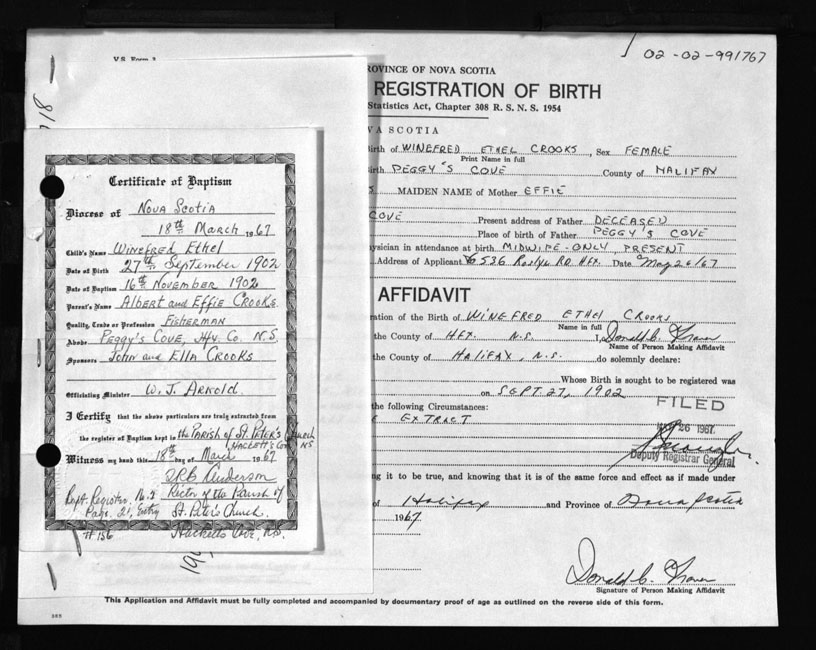 02-02-991767
V.S. Form
PROVINCE OF NOVA SCOTIA
REGISTRATION OF BIRTH
Statistics Act, Chapter 308 R. S. N. S. 1954
VA SCOTIA
Birth of WINEFRED ETHEL CROOKS, Sex FEMALE
Print Name in full
PEGGY'S COVE County of HALIFAX
MAIDEN NAME of Mother EFFIE
COVE Present address of Father DECEASED
Place of birth of Father PEGGY'S COVE
physician in attendance at birth MIDWIFE-ONLY PRESENT
Address of Applicant 6536 Roslyn RD HFX. Date May 26/67
AFFIDAVIT
ration of the Birth of WINEFRED ETHEL CROOKS
Name in full
the County of HFX. N.S. I, Donald C.
Name of Person Making Affidavit
the County of HALIFAX, N.S. do solemnly declare:
Whose Birth is sought to be registered was
on SEPT. 27, 1902
the following Circumstances:
EXTRACT
FILED
26 1967
Deputy Registrar General
ng it to be true, and knowing that it is of the same force and effect as if made under
of Halifax and Province of Nova Scotia
1967
Donald C.
Signature of Person Making Affidavit
This Application and Affidavit must be fully completed and accompanied by documentary proof of age as outlined on the reverse side of this form.
Certificate of Baptism
Diocese of NOVA SCOTIA
18th MARCH 1967
Child's Name WINEFRED ETHEL
Date of Birth 27th September 1902
Date of Baptism 16th NOVEMBER 1902
Parent's Name Albert and EFFIE CROOKS
Quality, Trade or Profession FISHERMAN
Abode PEGGY'S COVE, Hfx. Co. N.S.
Sponsors John and Ella CROOKS
Officiating Minister W. J. ARNOLD.
I Certify that the above particulars are truly extracted from
the register of Baptism kept in the PARISH of St. PETER'S CHURCH
HACKETT'S COVE N.S
Witness my hand this 18th day of March 1967
Anderson
Bapt. Register No. 2 Rector of the Parish of
Page. 21, Entry St. Peter's Church.
# 156 Hacketts Cove, N.S.